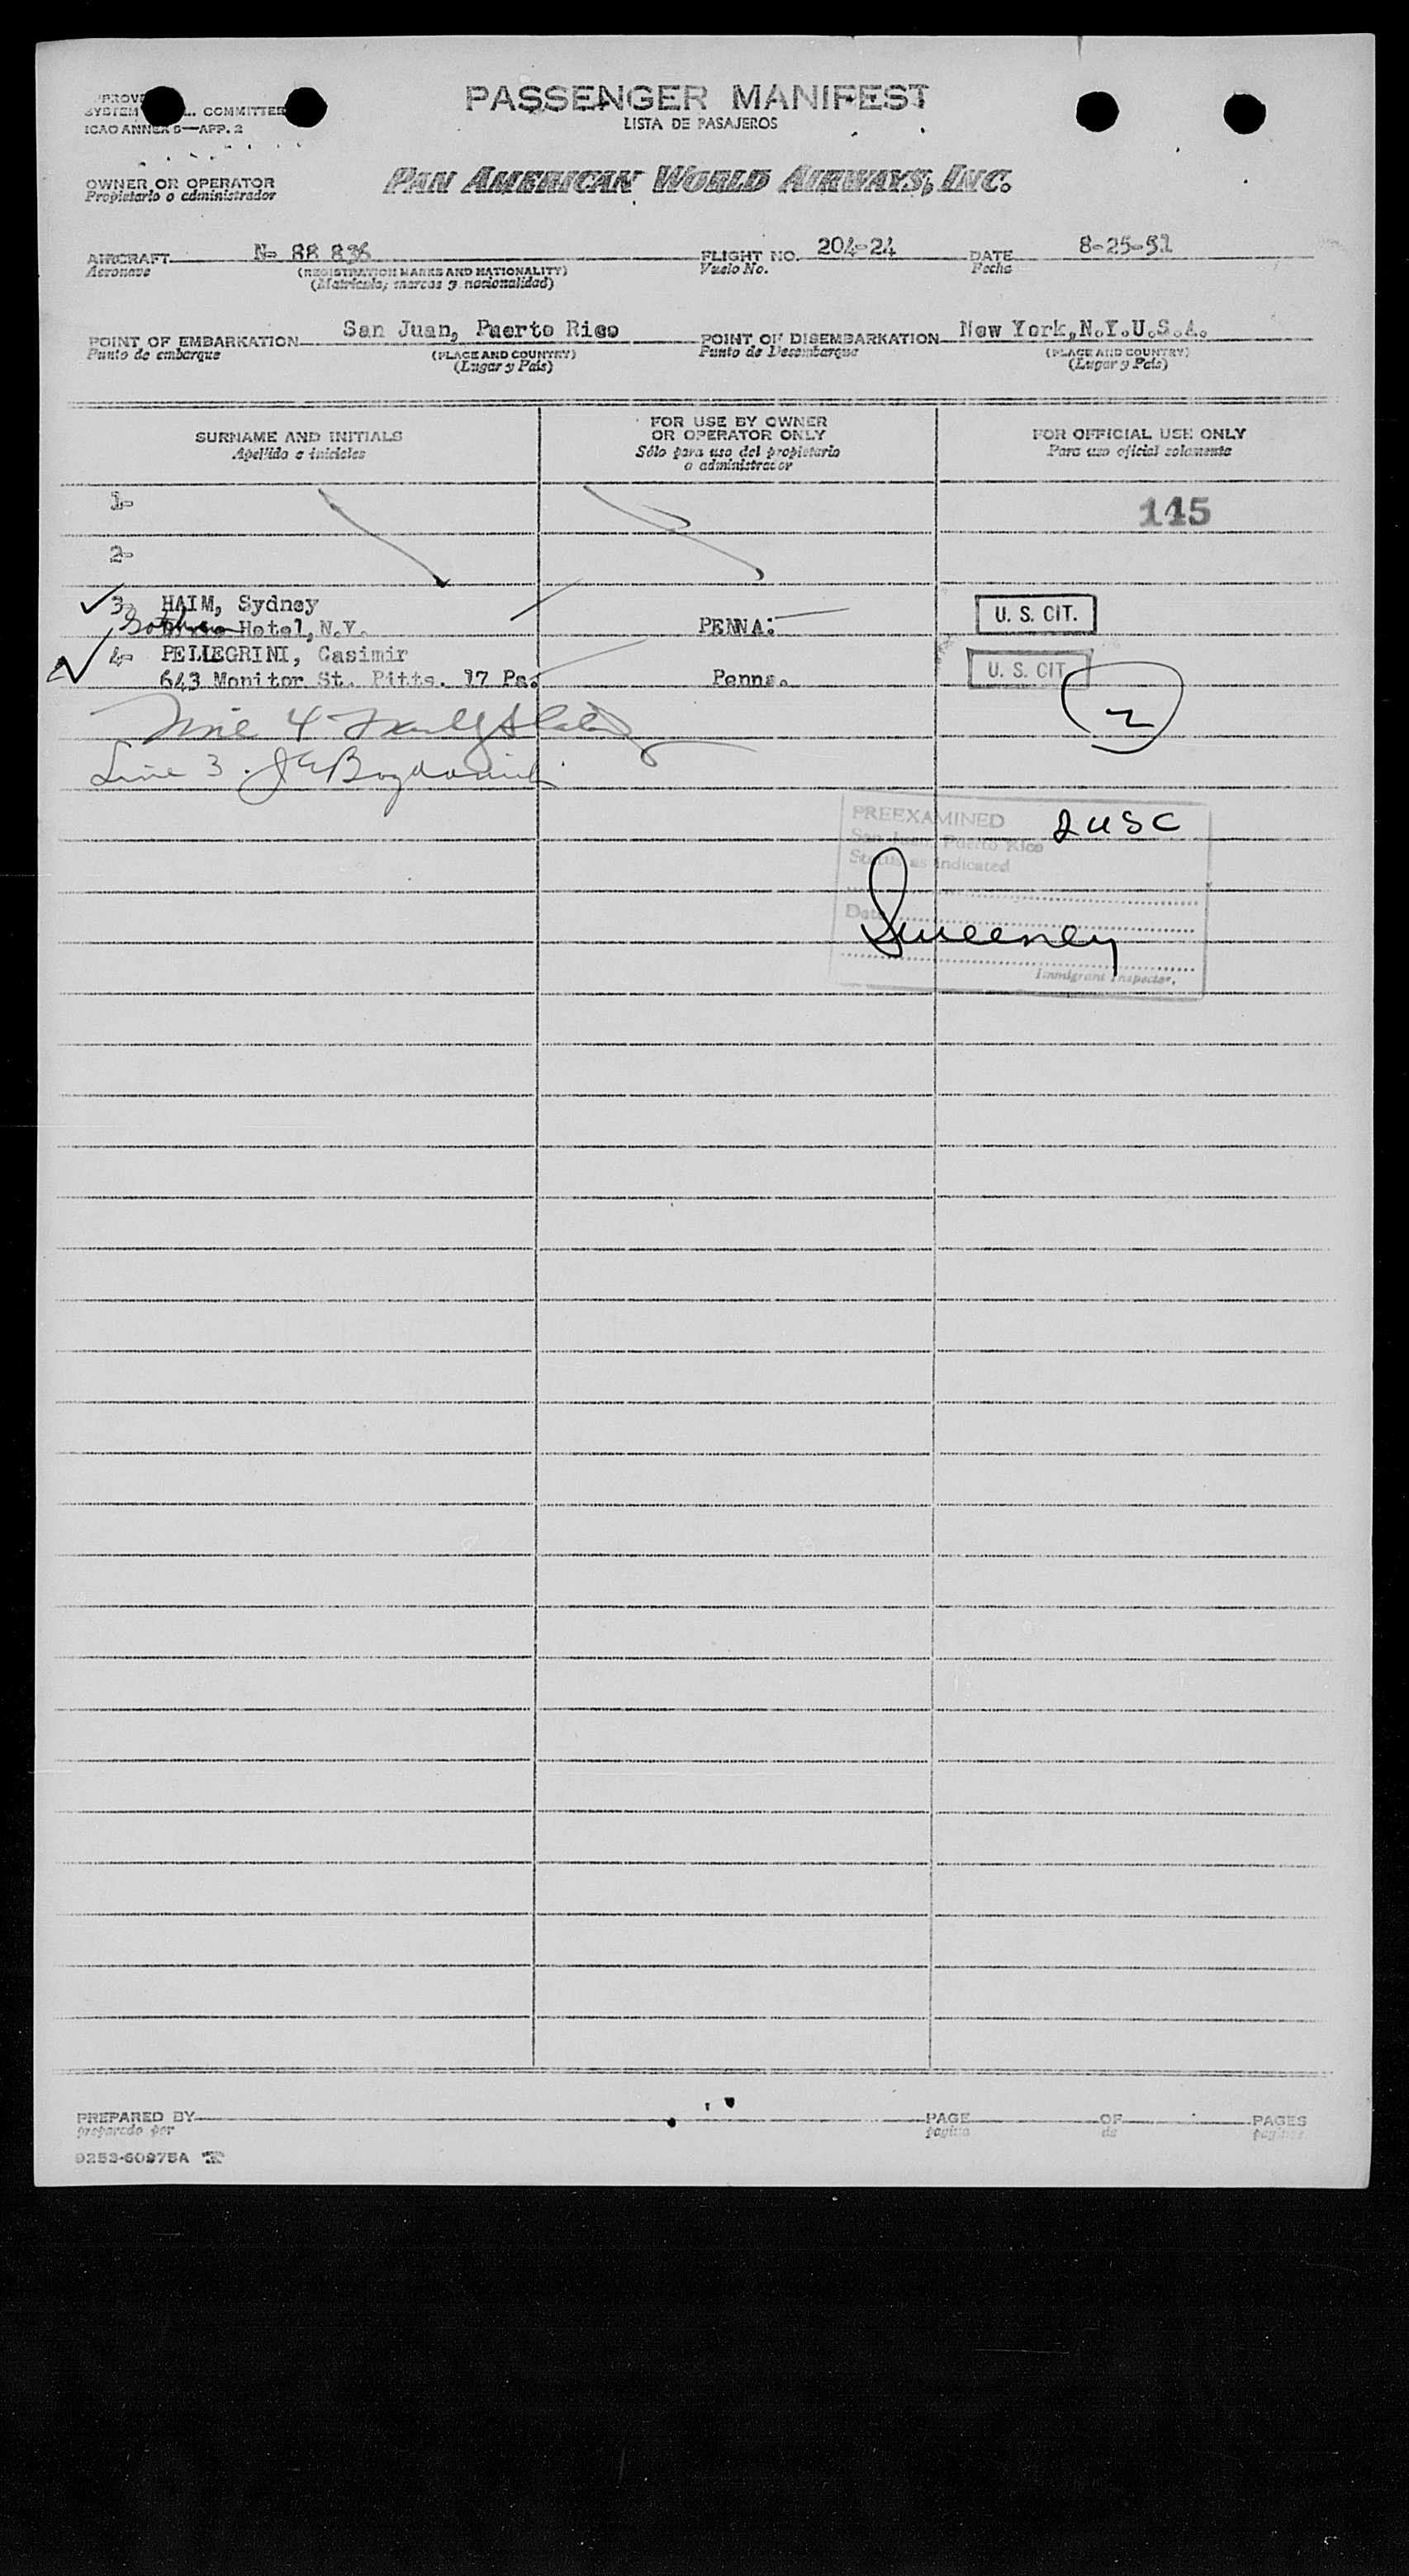 PASSENGER MANIFEST
LISTA DE PASAJEROS
SYSTEM COMMITTEE
ICAO ANNEX 9—APP. 2
OWNER OR OPERATOR
Propietario o administrador
PAN AMERICAN WORLD AIRWAYS, INC.
AIRCRAFT N- 88 836 FLIGHT NO. 204-24 DATE 8-25-51
Aeronave (REGISTRATION MARKS AND NATIONALITY) Vuelo No. Fecha
(Matricula, marcas y nacionalidad)
POINT OF EMBARKATION San Juan, Puerto Rico POINT OF DISEMBARKATION New York,N.Y.U.S.A.
Punto de embarque (PLACE AND COUNTRY) Punto de Desembarque (PLACE AND COUNTRY)
(Lugar y País) (Lugar y País)
SURNAME AND INITIALS
Apellido e iniciales
FOR USE BY OWNER
OR OPERATOR ONLY
Sólo para uso del propietario
o administrador
FOR OFFICIAL USE ONLY
Para uso oficial solamente
1- 115
2-
3- HAIM, Sydney
Hotel,N.Y. PENNA. U. S. CIT.
4- PELLEGRINI, Casimir
643 Monitor St. Pitts. 17 Pa. Penna. U. S. CIT.
2
Line 4
Line 3.
PREEXAMINED 2 USC
San Juan, Puerto Rico
Status as indicated
Date
Sweeney
Immigrant Inspector.
PREPARED BY PAGE OF PAGES
preparado por pagina de paginas
9253-60975A